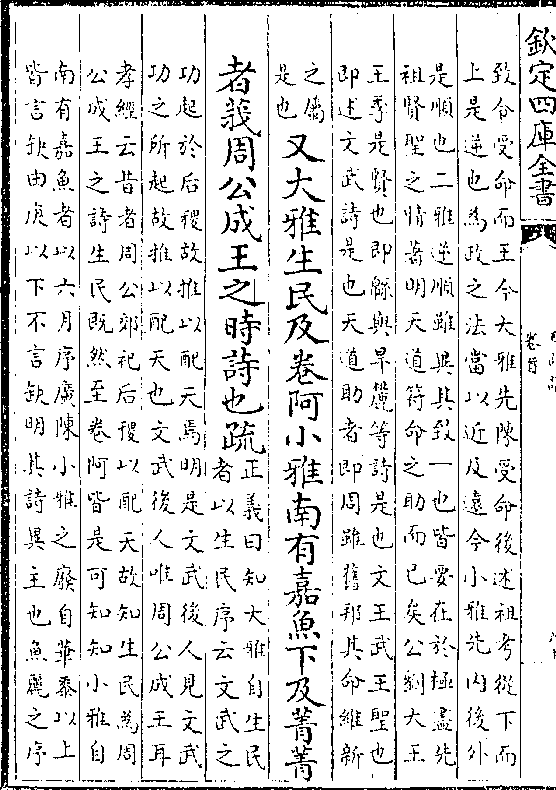 欽定四庫全書
卷首
致今受命而王今大雅先陳受命後述祖考從下而
上是逆也為政之法當以近及遠今小雅先内後外
是順也二雅逆順雖異其致一也皆要在於極盡先
祖賢聖之情著明天道符命之助而已矣公劉大王
王季是賢也即緜與旱麓等詩是也文王武王聖也
即述文武詩是也天道助者即周雖舊邦其命維新
之傳
是也
又大雅生民及卷阿小雅南有嘉魚下及菁菁
者莪周公成王之時詩也疏
正義曰知大雅自生民
者以生民序云文武之
功起於后稷故推以配天焉明是文武後人見文武
功之所起故推以配天也文武後人唯周公成王耳
孝經云昔者周公郊祀后稷以配天故知生民為周
公成王之詩生民既然至卷阿皆是可知知小雅自
南有嘉魚者以六月序廣陳小雅之廢自華黍以上
皆言缺由庚以下不言缺明其詩異主也魚麗之序